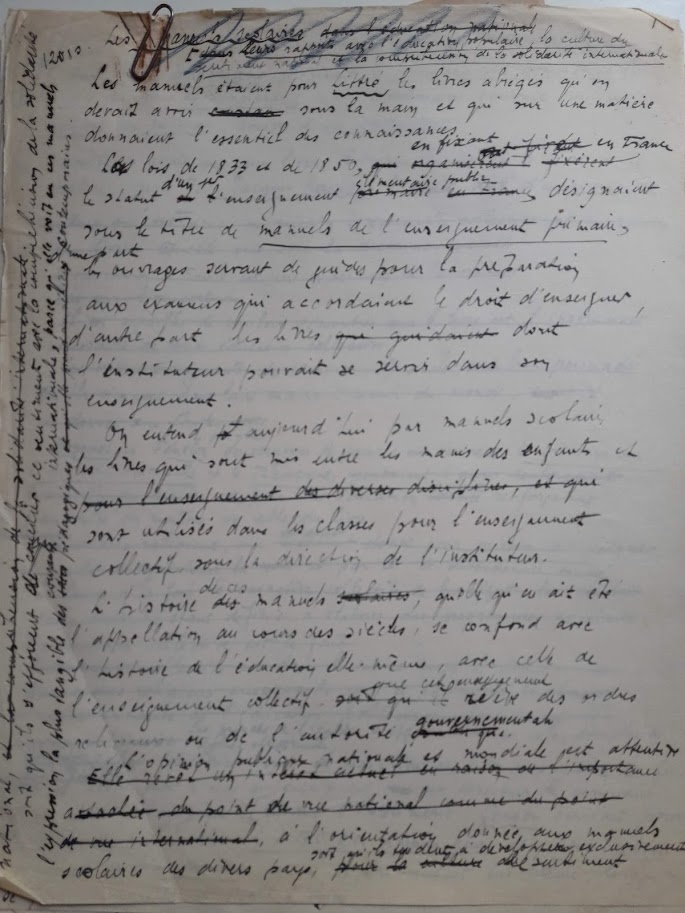 Les manuels scolaires dans l'éducation nationale
dans leurs rapports avec l'éducation populaire, la culture du
sentiment national et la compréhension de la solidarité internationale
Les manuels étaient pour Littré les livres abrégés qu'on
devait avoir sous la main et qui sur une matière
donnaient l'essentiel des connaissances
Les lois de 1833 et de 1850, qui organisèrent et fixèrent en fixant en France
le statut de l'enseignement primaire élémentaire public en France, désignaient
sous le titre de manuels de l'enseignement primaire,
d'une part
les ouvrages servant de guides pour la préparation
aux examens qui accordaient le droit d'enseigner,
d'autre part les livres qui guidaient dont
l'instituteur pouvait se servir dans son
enseignement.
On entend aujourd'hui par manuels scolaires
les livres qui sont mis entre les mains des enfants et
pour l'enseignement des diverses disciplines, et qui
sont utilisés dans les classes pour l'enseignement
collectif sous la direction de l'instituteur.
L'histoire des de ces manuels scolaires, quelle qu'en ait été
l'appellation au cours des siècles, se confond avec
l'histoire de l'éducation elle-même, avec celle de
l'enseignement collectif. que cet enseignement
soit qu'il relève des ordres
religieux ou de l'autorité gouvernementale
L'opinion publique nationale et mondiale est attentive
Elle revêt un intérêt actuel en raison de l'importance
attachée du point de vue national comme du point
de vue international, à l'orientation donnée aux manuels
scolaires des divers pays, soit qu'ils tendent à développer exclusivement
pour la culture du sentiment
national, et la compréhension de la solidarité internationale
soit qu'ils s'efforcent de concilier ce sentiment avec la compréhension de la solidarité
internationale, parce qu'elle voit en ces manuels
l'expression la plus tangible des courants pédagogiques et contemporains.